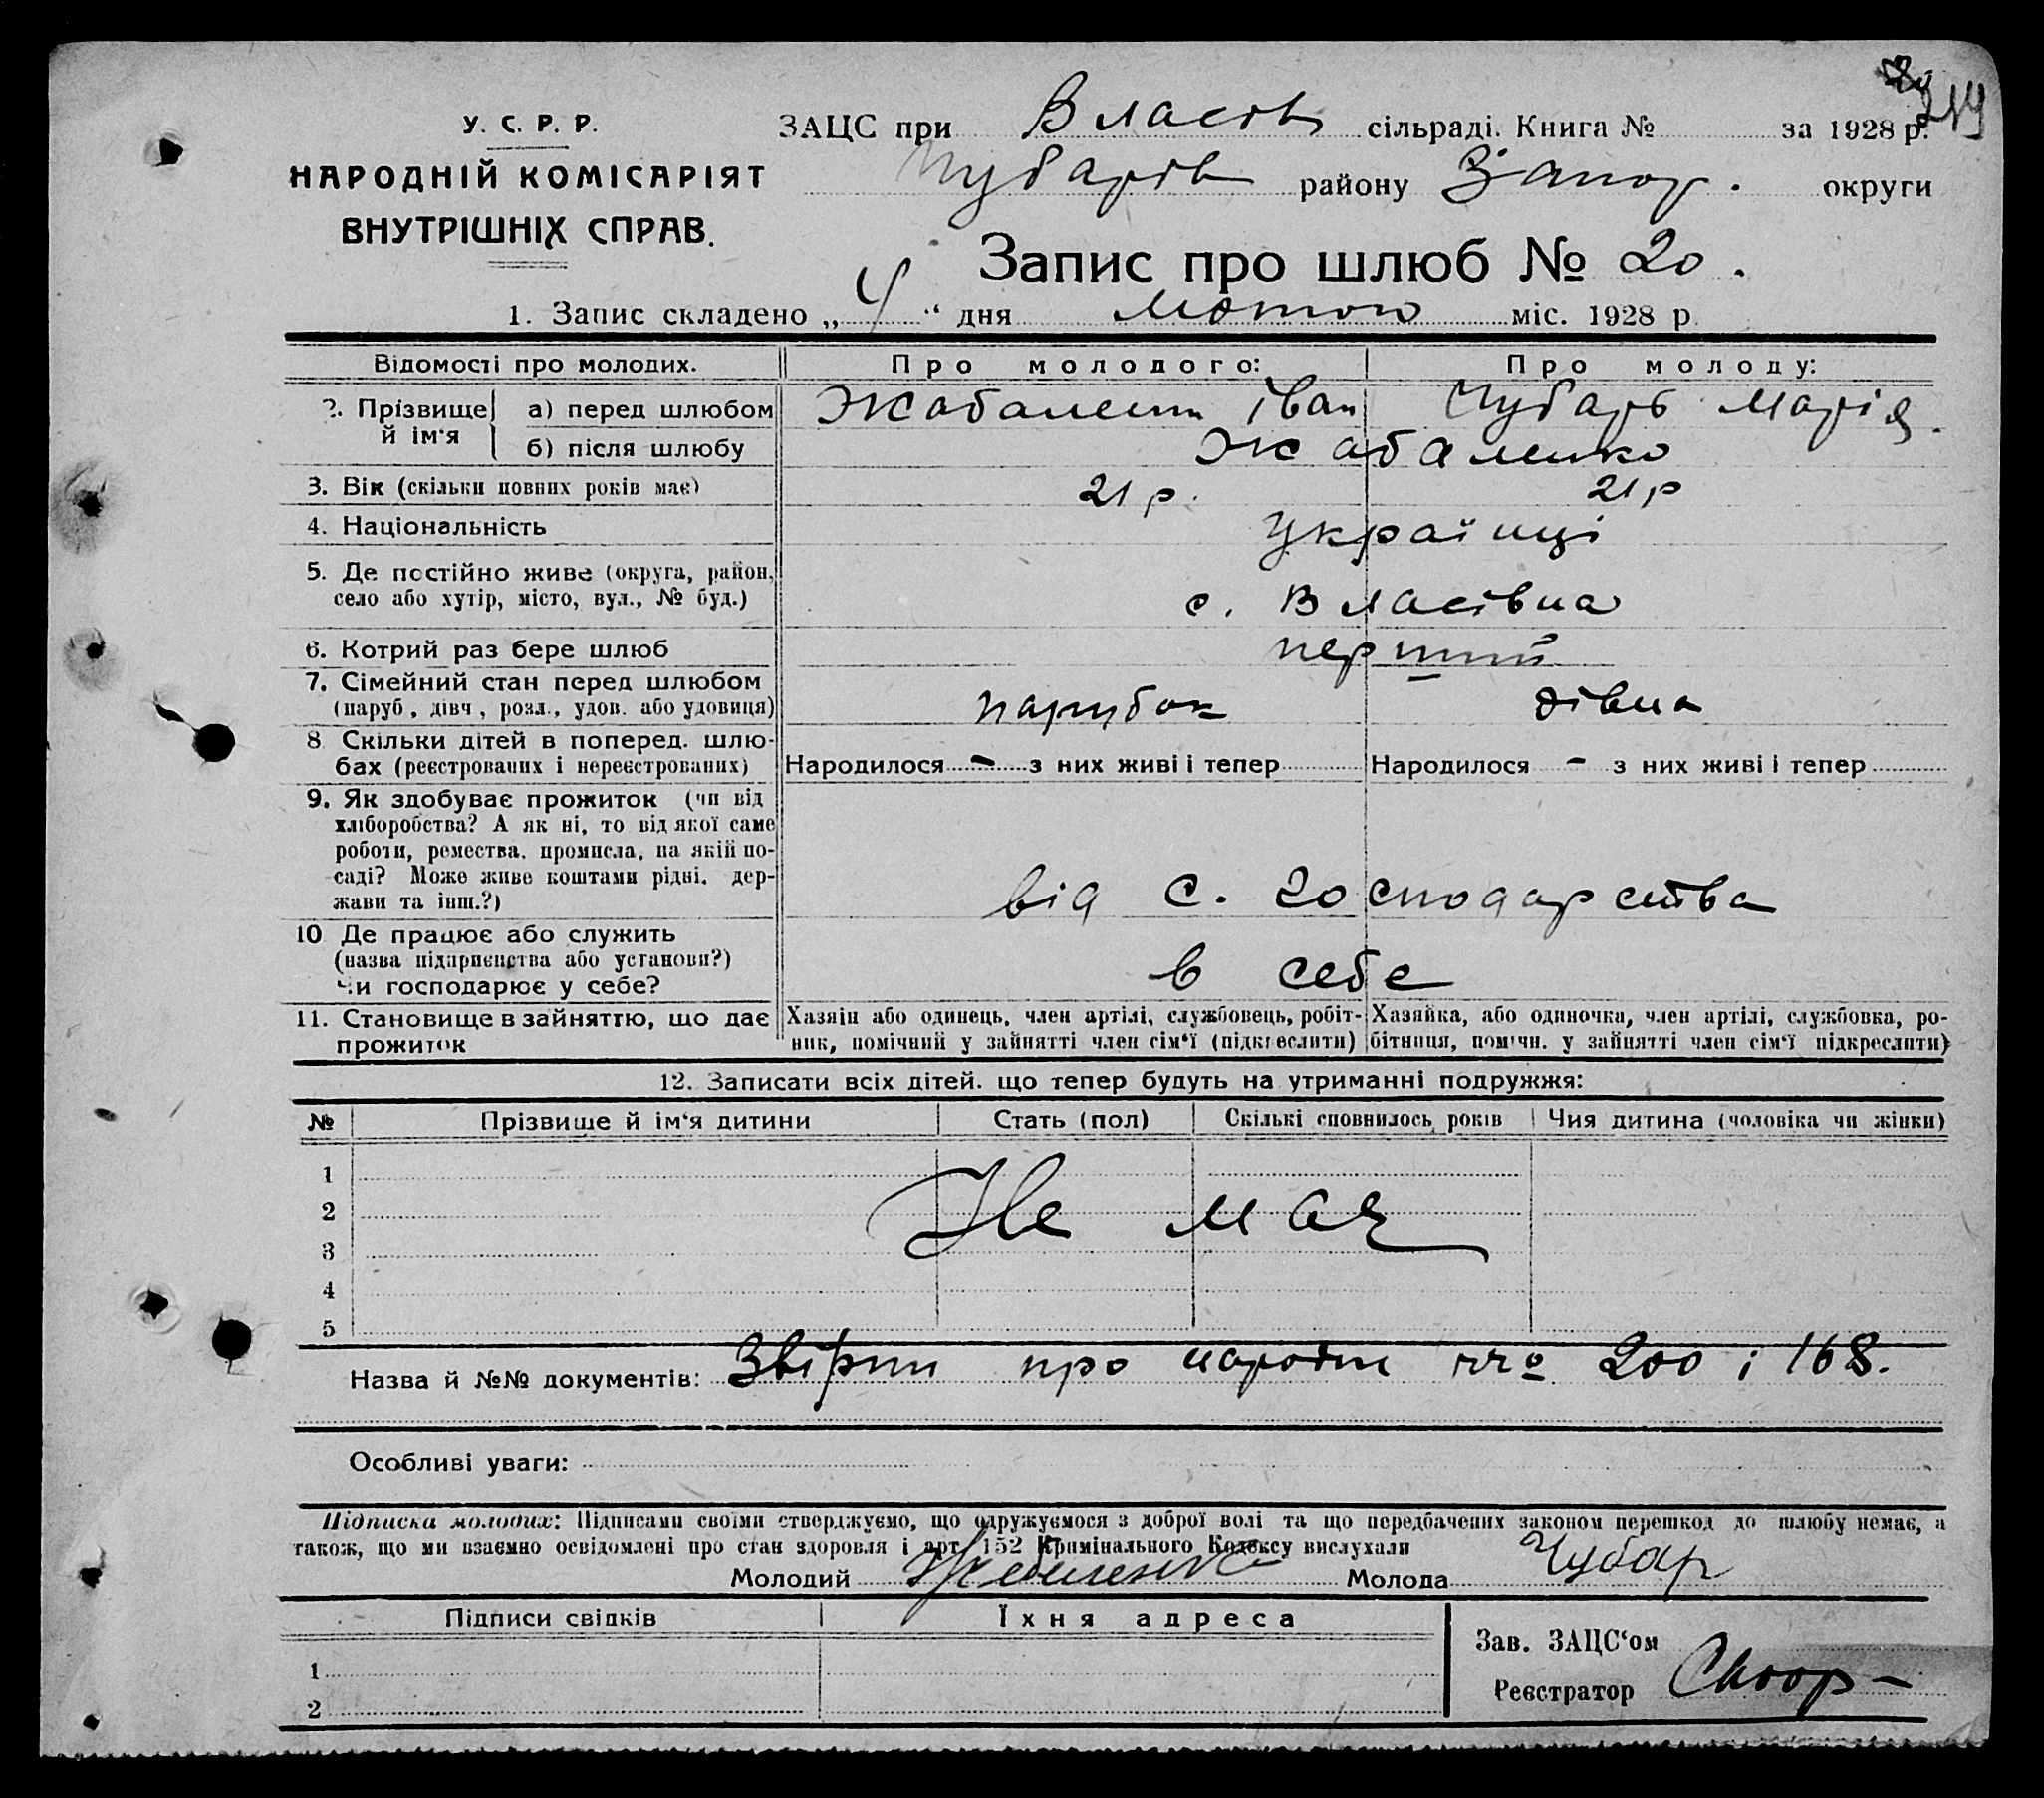 249
У. С. Р. Р.
НАРОДНІЙ КОМІСАРІЯТ
ВНУТРІШНІХ СПРАВ.
ЗАЦС при Власів сільраді. Книга № за 1928 р.
Чубарів району Запор. округи
Запис про шлюб № 20.
1. Запис складено „4“ дня лютого міс. 1928 р
Відомості про молодих. Про молодого: Про молоду:
2. Прізвище й ім'я а) перед шлюбом Жабаленко Іван Чубарь Марія.
б) після шлюбу Жабаленко
3. Вік (скільки повних років має) 21 р. 21 р
4. Національність Українці
5. Де постійно живе (округа, район,
село або хутір, місто, вул., № буд.) с. Власівка
6. Котрий раз бере шлюб перший
7. Сімейний стан перед шлюбом
(паруб., дівч., розл., удов. або удовиця) парубок дівка
8. Скільки дітей в поперед. шлю-
бах (реєстрованих і нереєстрованих) Народилося - з них живі і тепер Народилося - з них живі і тепер
9. Як здобуває прожиток (чи від
хліборобства? А як ні, то від якої саме
роботи, ремества, промисла, на якій по-
саді? Може живе коштами рідні, дер-
жави та інш.?) від с. господарства
10 Де працює або служить
(назва підприємства або установи?)
Чи господарює у себе? в себе
11. Становище в зайняттю, що дає
прожиток
Хазяін або одинець, член артілі, службовець, робіт-
ник, помічний у зайнятті член сім'ї (підкреслити)
Хазяйка, або одиночка, член артілі, службовка, ро-
бітниця, помічн. у зайнятті член сім'ї підкреслити)
12. Записати всіх дітей, що тепер будуть на утриманні подружжя:
№ Прізвище й ім'я дитини Стать (пол) Скількі сповнилось років Чия дитина (чоловіка чи жінки)
1
2 Не має
3
4
5
Назва й №№ документів: про народж № 200 і 168.
Особливі уваги:
Підписка молодих: Підписами своїми стверджуємо, що одружуємося з доброї волі та що передбачених законом перешкод до шлюбу немає, а
також, що ми взаємно освідомлені про стан здоровля і арт. 152 Кримінального Кодексу вислухали
Молодий Жабаленко Молода Чубар
Підписи свідків Їхня адреса
Зав. ЗАЦС'ом
1
Реєстратор
2